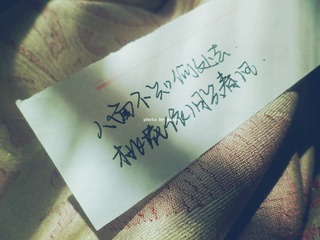 人面不知何处去.
桃花依旧笑春风.
photo by